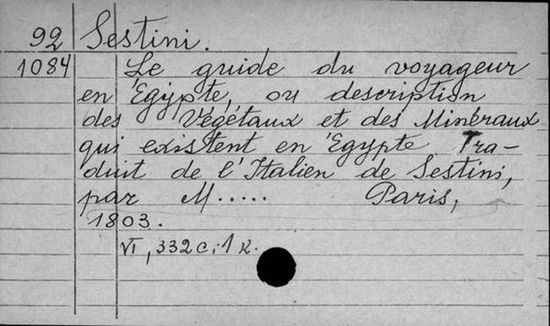 92 Sestini.
1084 Le guide du voyageur
en Egypte, ou description
des Végétaux et des Minéraux
qui existent en Egypte. Tra-
duit de l'Italien de Sestini,
par M..... Paris,
1803.
VI, 332 c; 1 к.